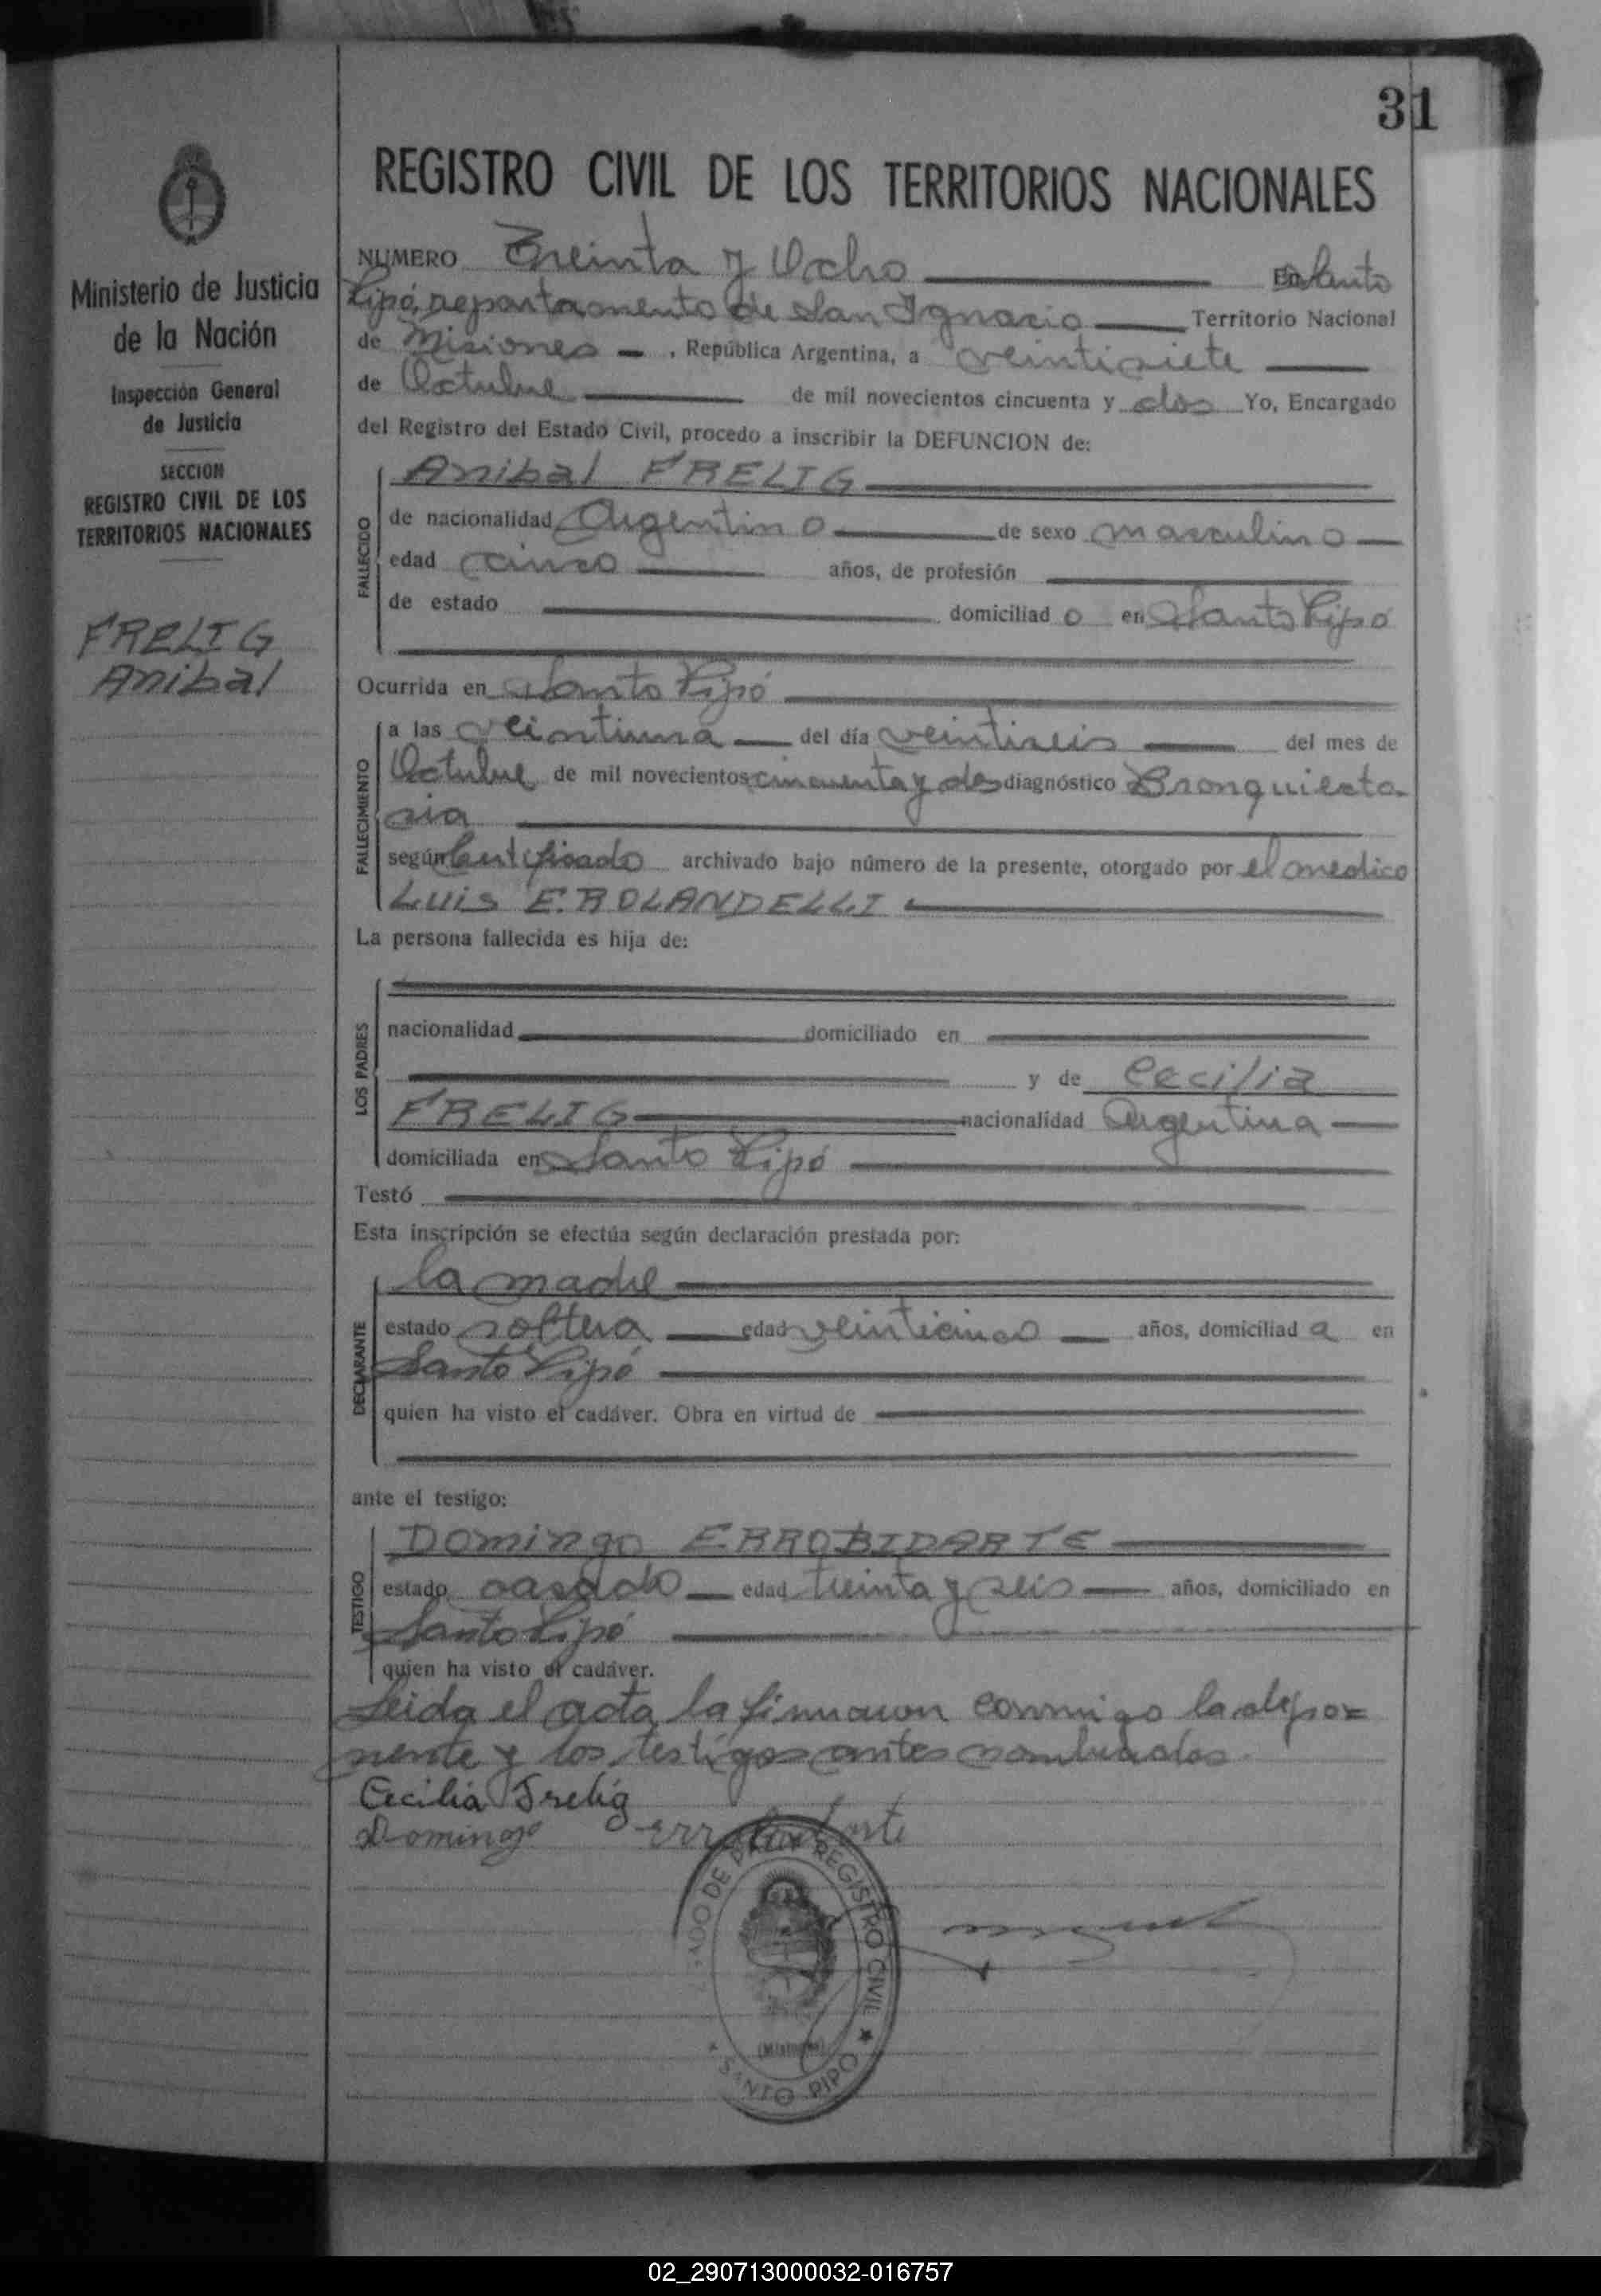 31
REGISTRO CIVIL DE LOS TERRITORIOS NACIONALES
Ministerio de Justicia
de la Nación
Inspección General
de Justicia
SECCION
REGISTRO CIVIL DE LOS
TERRITORIOS NACIONALES
FRELIG
Anibal
NUMERO Treinta y Ocho En Santo
Pipó, departamento de San Ignacio Territorio Nacional
de Misiones , República Argentina, a veintisiete
de Octubre de mil novecientos cincuenta y dos Yo, Encargado
del Registro del Estado Civil, procedo a inscribir la DEFUNCION de:
FALLECIDO
Anibal FRELIG
de nacionalidad Argentino de sexo masculino
edad cinco años, de profesión
de estado domiciliado en Santo Pipó
Ocurrida en Santo Pipó
FALLECIMIENTO
a las veintiuna del día veintiseis del mes de
Octubre de mil novecientos cincuenta y dos diagnóstico Bronquiecta-
sia
según Certificado archivado bajo número de la presente, otorgado por el medico
Luis E. ROLANDELLI
La persona fallecida es hija de:
LOS PADRES
nacionalidad domiciliado en
y de Cecilia
FRELIG nacionalidad Argentina
domiciliada en Santo Pipó
Testó
Esta inscripción se efectúa según declaración prestada por:
DECLARANTE
la madre
estado soltera edad veinticinco años, domiciliada en
Santo Pipó
quien ha visto el cadáver. Obra en virtud de
ante el testigo:
TESTIGO
Domingo ERROBIDARTE
estado casado edad treinta y seis años, domiciliado en
Santo Pipó
quien ha visto el cadáver.
Leida el acta la firmaron conmigo la depo=
nente y los testigos antes nombrados.
Cecilia Frelig
Domingo Errobidarte
DE PAZ Y REGISTRO CIVIL ★
(Misiones)
SANTO PIPO
02_290713000032-016757